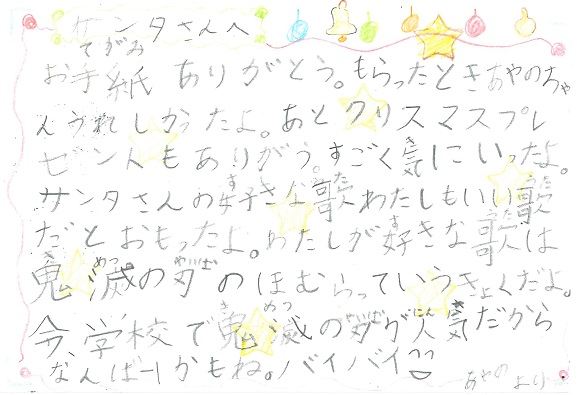 サンタさんへ
てがみ
お手紙 ありがとう。もらったときあやのちゃ
んうれしかったよ。あとクリスマスプレ
ゼントもありがう。すごく気にいったよ。
す うた うた
サンタさんの好きな歌わたしもいい歌
す うた
だとおもったよ。わたしが好きな歌は
き めつ やいば
鬼滅の刃のほむらっていうきょくだよ。
き めつ やいば にん き
今、学校で鬼滅の刃が人気だから
なんばー1かもね。バイバイ
あやの より